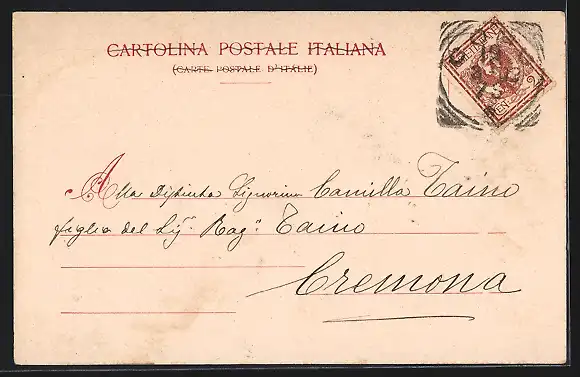 CARTOLINA POSTALE ITALIANA
(CARTE POSTALE D'ITALIE)
Alla Distinta Signorina Camilla Taino
figlia del Sig.r Rag.r Taino
Cremona